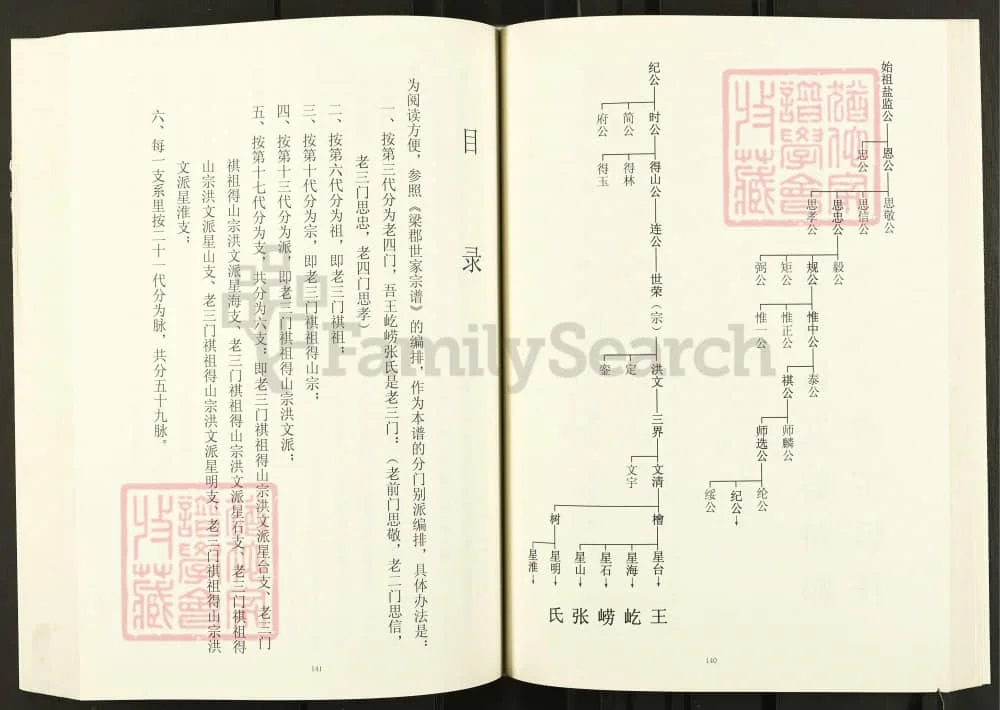 始祖盐监公
恩公
忠公
思敬公
思信公
思忠公
思孝公
毅公
规公
矩公
弼公
惟中公
惟正公
惟一公
泰公
祺公
师麟公
师选公
纶公
纪公
绥公
纪公
时公
简公
府公
得山公
得林
得玉
连公
世荣（宗）
洪文
定
銮
三界
文清
文宇
檜
树
星台
星海
星石
星山
星明
星淮
王屹崂张氏
140
目录
为阅读方便，参照《梁郡世家宗谱》的编排，作为本谱的分门别派编排，具体办法是：
一、按第三代分为老四门，吾王屹崂张氏是老三门：（老前门思敬，老二门思信，
老三门思忠，老四门思孝）
二、按第六代分为祖，即老三门祺祖；
三、按第十代分为宗，即老三门祺祖得山宗；
四、按第十三代分为派，即老三门祺祖得山宗洪文派；
五、按第十七代分为支，共分为六支：即老三门祺祖得山宗洪文派星台支、老三门
祺祖得山宗洪文派星海支、老三门祺祖得山宗洪文派星石支、老三门祺祖得
山宗洪文派星山支、老三门祺祖得山宗洪文派星明支、老三门祺祖得山宗洪
文派星淮支；
六、每一支系里按二十一代分为脉，共分五十九脉。
141
FamilySearch